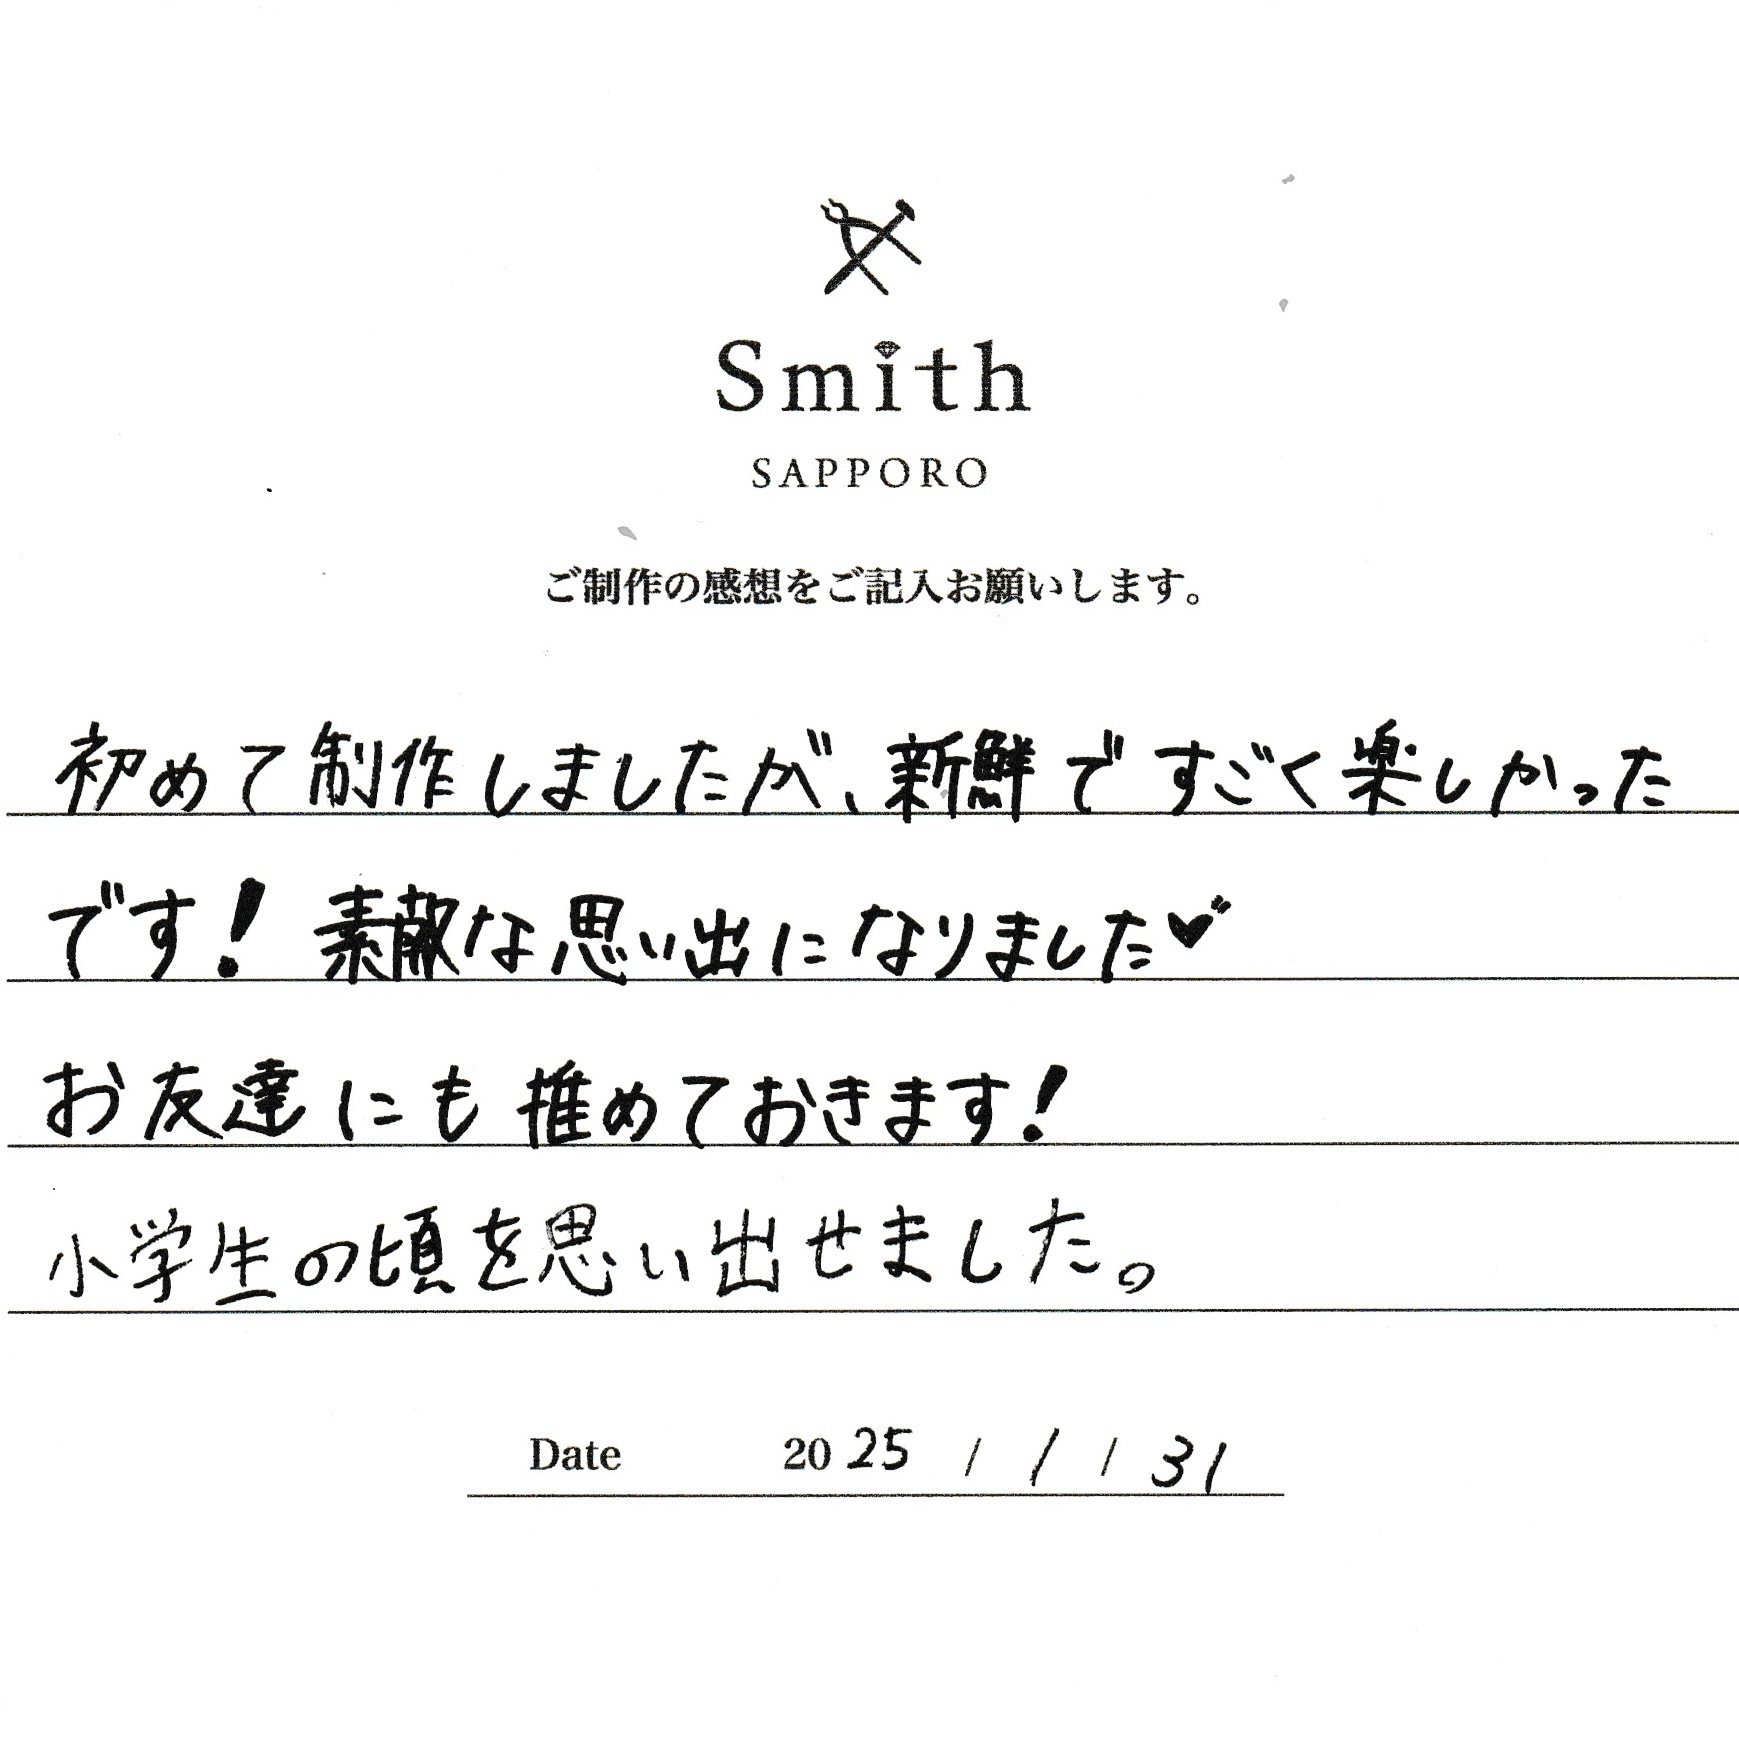 Smith
SAPPORO
ご制作の感想をご記入お願いします。
初めて制作しましたが、新鮮ですごく楽しかった
です！素敵な思い出になりました♥
お友達にも推めておきます！
小学生の頃を思い出せました。
Date 2025 / 1 / 31